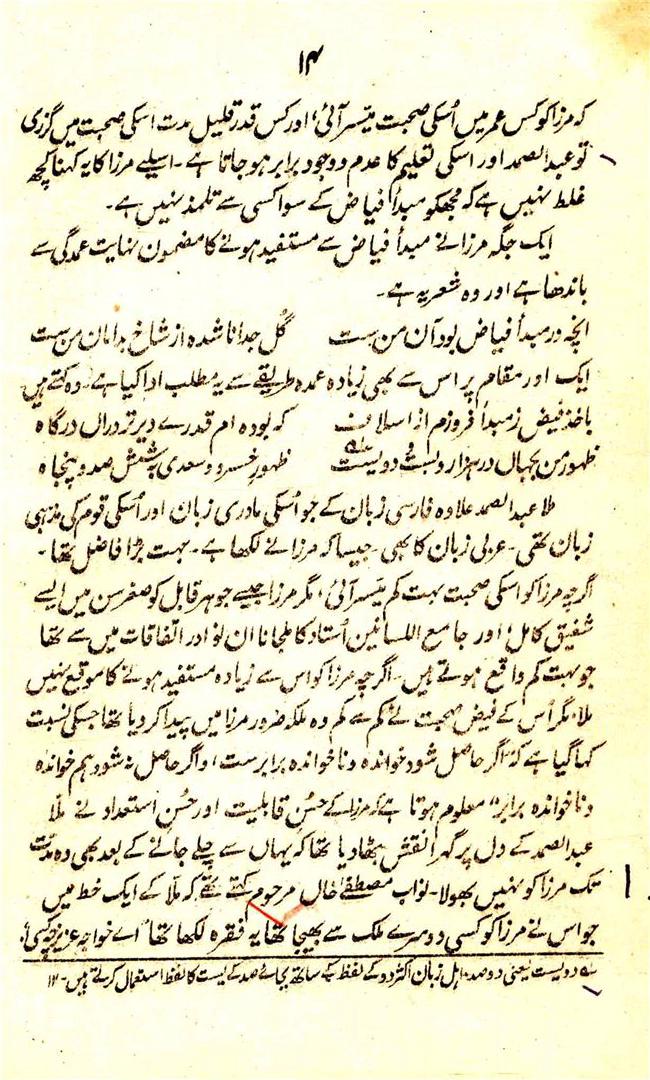 ۱۴
کہ مرزا کو کس عمر میں اُسکی صحبت میسر آئی، اور کس قدر قلیل مدت اسکی صحبت میں گزری
تو عبدالصمد اور اسکی تعلیم کا عدم و وجود برابر ہو جاتا ہے۔ اسیلے مرزا کا یہ کہنا کچھ
غلط نہیں ہے کہ مجھکو مبدأ فیاض کے سوا کسی سے تلمذ نہیں ہے۔
ایک جگہ مرزا نے مبدأ فیاض سے مستفید ہونے کا مضمون نہایت عمدگی سے
باندھا ہے اور وہ شعر یہ ہے۔
انچہ در مبدأ فیاض بود آن من ست گُل جدا نا شدہ از شاخ بدامان من ست
ایک اور مقام پر اس سے بھی زیادہ عمدہ طریقے سے یہ مطلب ادا کیا ہے، وہ کہتے ہیں
باخذ فیض ز مبدأ فزوزم از اسلاف کہ بودہ ام قدرے دیر تر دراں درگاہ
ظہور من بجہاں در ہزار و بست و دویست ظہور خسرو و سعدی بشش صد و پنجاہ
ملا عبدالصمد علاوہ فارسی زبان کے جو اُسکی مادری زبان اور اُسکی قوم کی مذہبی
زبان تھی۔ عربی زبان کا بھی۔ جیسا کہ مرزا نے لکھا ہے۔ بہت بڑا فاضل تھا۔
اگرچہ مرزا کو اسکی صحبت بہت کم میسر آئی، مگر مرزا جیسے جوہر قابل کو صغر سن میں ایسے
شفیق کامل، اور جامع اللسانین اُستاد کا ملجانا ان نوادر اتفاقات میں سے تھا
جو بہت کم واقع ہوتے ہیں۔ اگرچہ مرزا کو اس سے زیادہ مستفید ہونے کا موقع نہیں
ملا، مگر اُس کے فیض صحبت نے کم سے کم وہ ملکہ ضرور مرزا میں پیدا کر دیا تھا جسکی نسبت
کہا گیا ہے کہ "اگر حاصل شود خواندہ و نا خواندہ برابر ست، و اگر حاصل نہ شود ہم خواندہ
و نا خواندہ برابر" معلوم ہوتا ہے کہ مرزا کے حسن قابلیت اور حسن استعداد نے ملا
عبدالصمد کے دل پر گہرا نقش بٹھا دیا تھا کہ یہاں سے چلے جانے کے بعد بھی وہ مدت
تک مرزا کو نہیں بھولا۔ نواب مصطفےٰ خاں مرحوم کہتے تھے کہ ملا کے ایک خط میں
جو اس نے مرزا کو کسی دوسرے ملک سے بھیجا تھا یہ فقرہ لکھا تھا "اے عزیز چہ کسی؛
؂ دویست یعنی دو صد، اہل زبان اکثر دو کے لفظ کے ساتھ بجائے صد کے یست کا لفظ استعمال کرتے ہیں۔ ۱۲